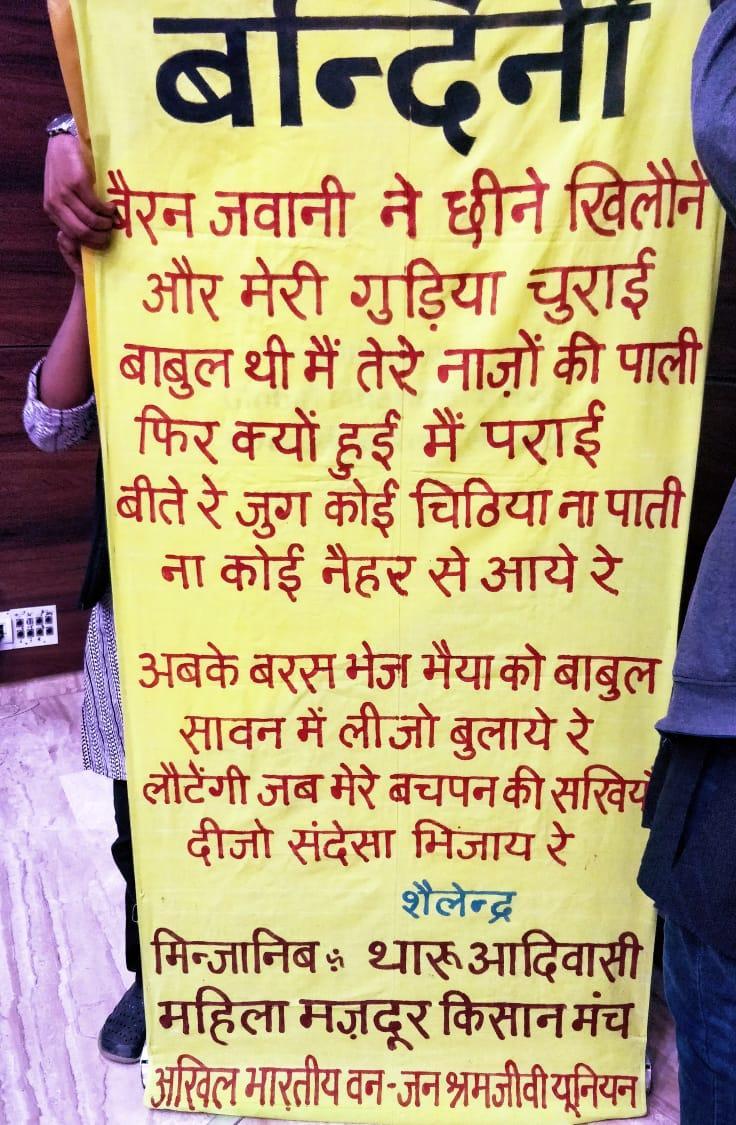 बन्दिनी
बैरन जवानी ने छीने खिलौने
और मेरी गुड़िया चुराई
बाबुल थी मैं तेरे नाज़ों की पाली
फिर क्यों हुई मैं पराई
बीते रे जुग कोई चिठिया ना पाती
ना कोई नैहर से आये रे
अबके बरस भेज भैया को बाबुल
सावन में लीजो बुलाये रे
लौटेंगी जब मेरे बचपन की सखियाँ
दीजो संदेसा भिजाय रे
शैलेन्द्र
मिन्जानिब ः थारू आदिवासी
महिला मज़दूर किसान मंच
अखिल भारतीय वन-जन श्रमजीवी यूनियन